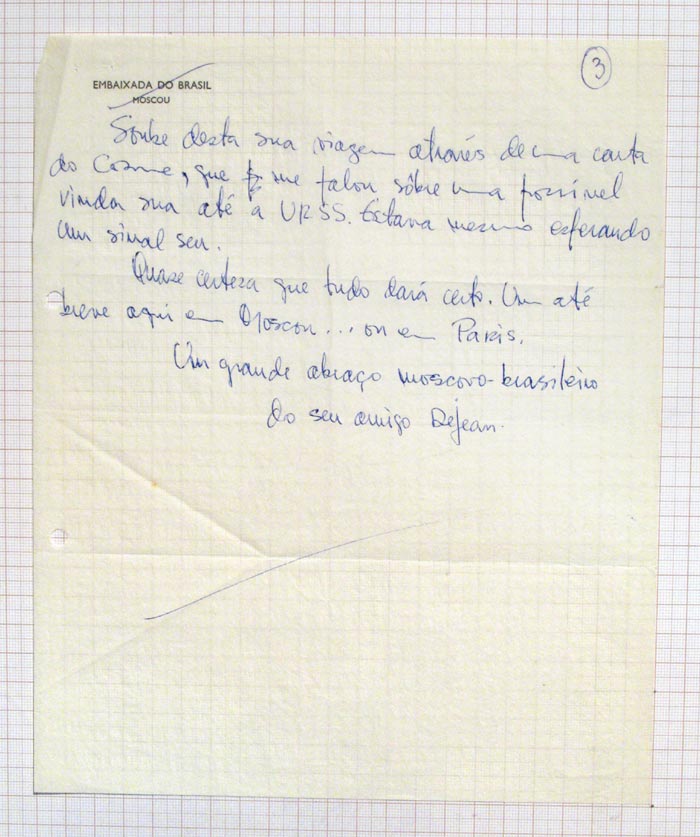 3
EMBAIXADA DO BRASIL
MOSCOU
Soube desta sua viagem através de uma carta
do Cosme, que me falou sôbre uma possível
vinda sua até a URSS. Estava mesmo esperando
um sinal seu.
Quase certeza que tudo dará certo. Um até
breve aqui em Moscou... ou em Paris.
Um grande abraço moscovo-brasileiro
do seu amigo Dejean.